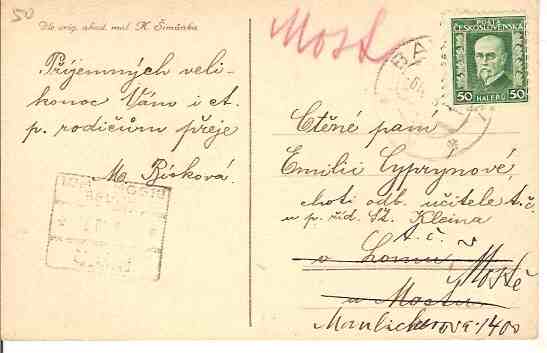 50
Dle orig. akad. mal. K. Šimůnka
Most
POŠTA
ČESKOSLOVENSKÁ
50 HALÉŘŮ 50
Příjemných veli-
konoc Vám i ct.
p. rodičům přeje
M. Bísková.
Ctěné paní
Emilii Cyprynové,
choti odb. učitele t. č.
u p. říd. Kleina
t. č. v
v Lomu Mostě
u Mostu